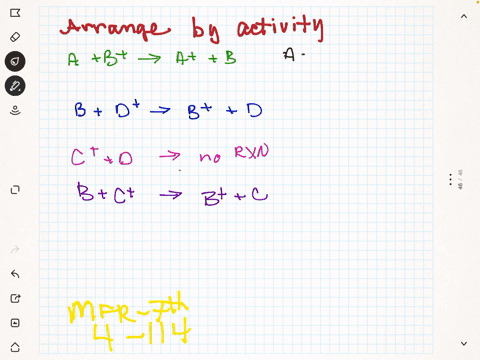 Arrange by activity
A + B+ → A+ + B A.
B + D+ → B+ + D
C+ + D → no RXN
B + C+ → B+ + C
MFR - 7th
4 - 114